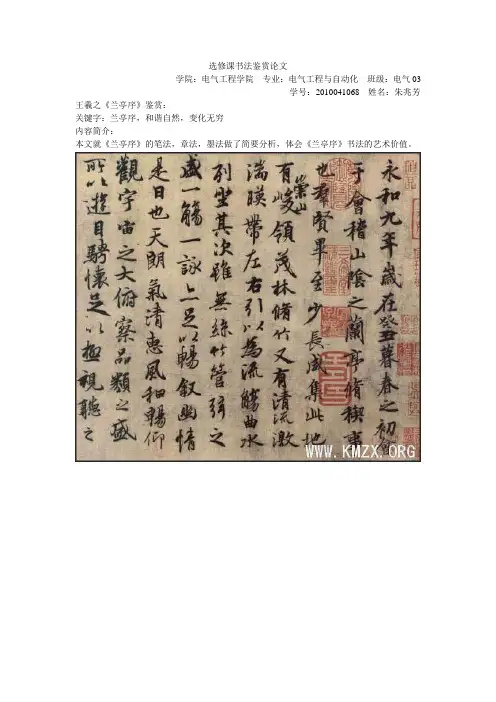 选修课书法鉴赏论文
学院：电气工程学院 专业：电气工程与自动化 班级：电气03
学号：2010041068 姓名：朱兆芳
王羲之《兰亭序》鉴赏：
关键字：兰亭序，和谐自然，变化无穷
内容简介：
本文就《兰亭序》的笔法，章法，墨法做了简要分析，体会《兰亭序》书法的艺术价值。
永和九年歲在癸丑暮春之初會
于會稽山陰之蘭亭脩稧事
也羣賢畢至少長咸集此地
有崇山峻領茂林脩竹又有清流激
湍暎帶左右引以為流觴曲水
列坐其次雖無絲竹管弦之
盛一觴一詠亦足以暢敘幽情
是日也天朗氣清惠風和暢仰
觀宇宙之大俯察品類之盛
所以遊目騁懷足以極視聽之
WWW.KMZX.ORG